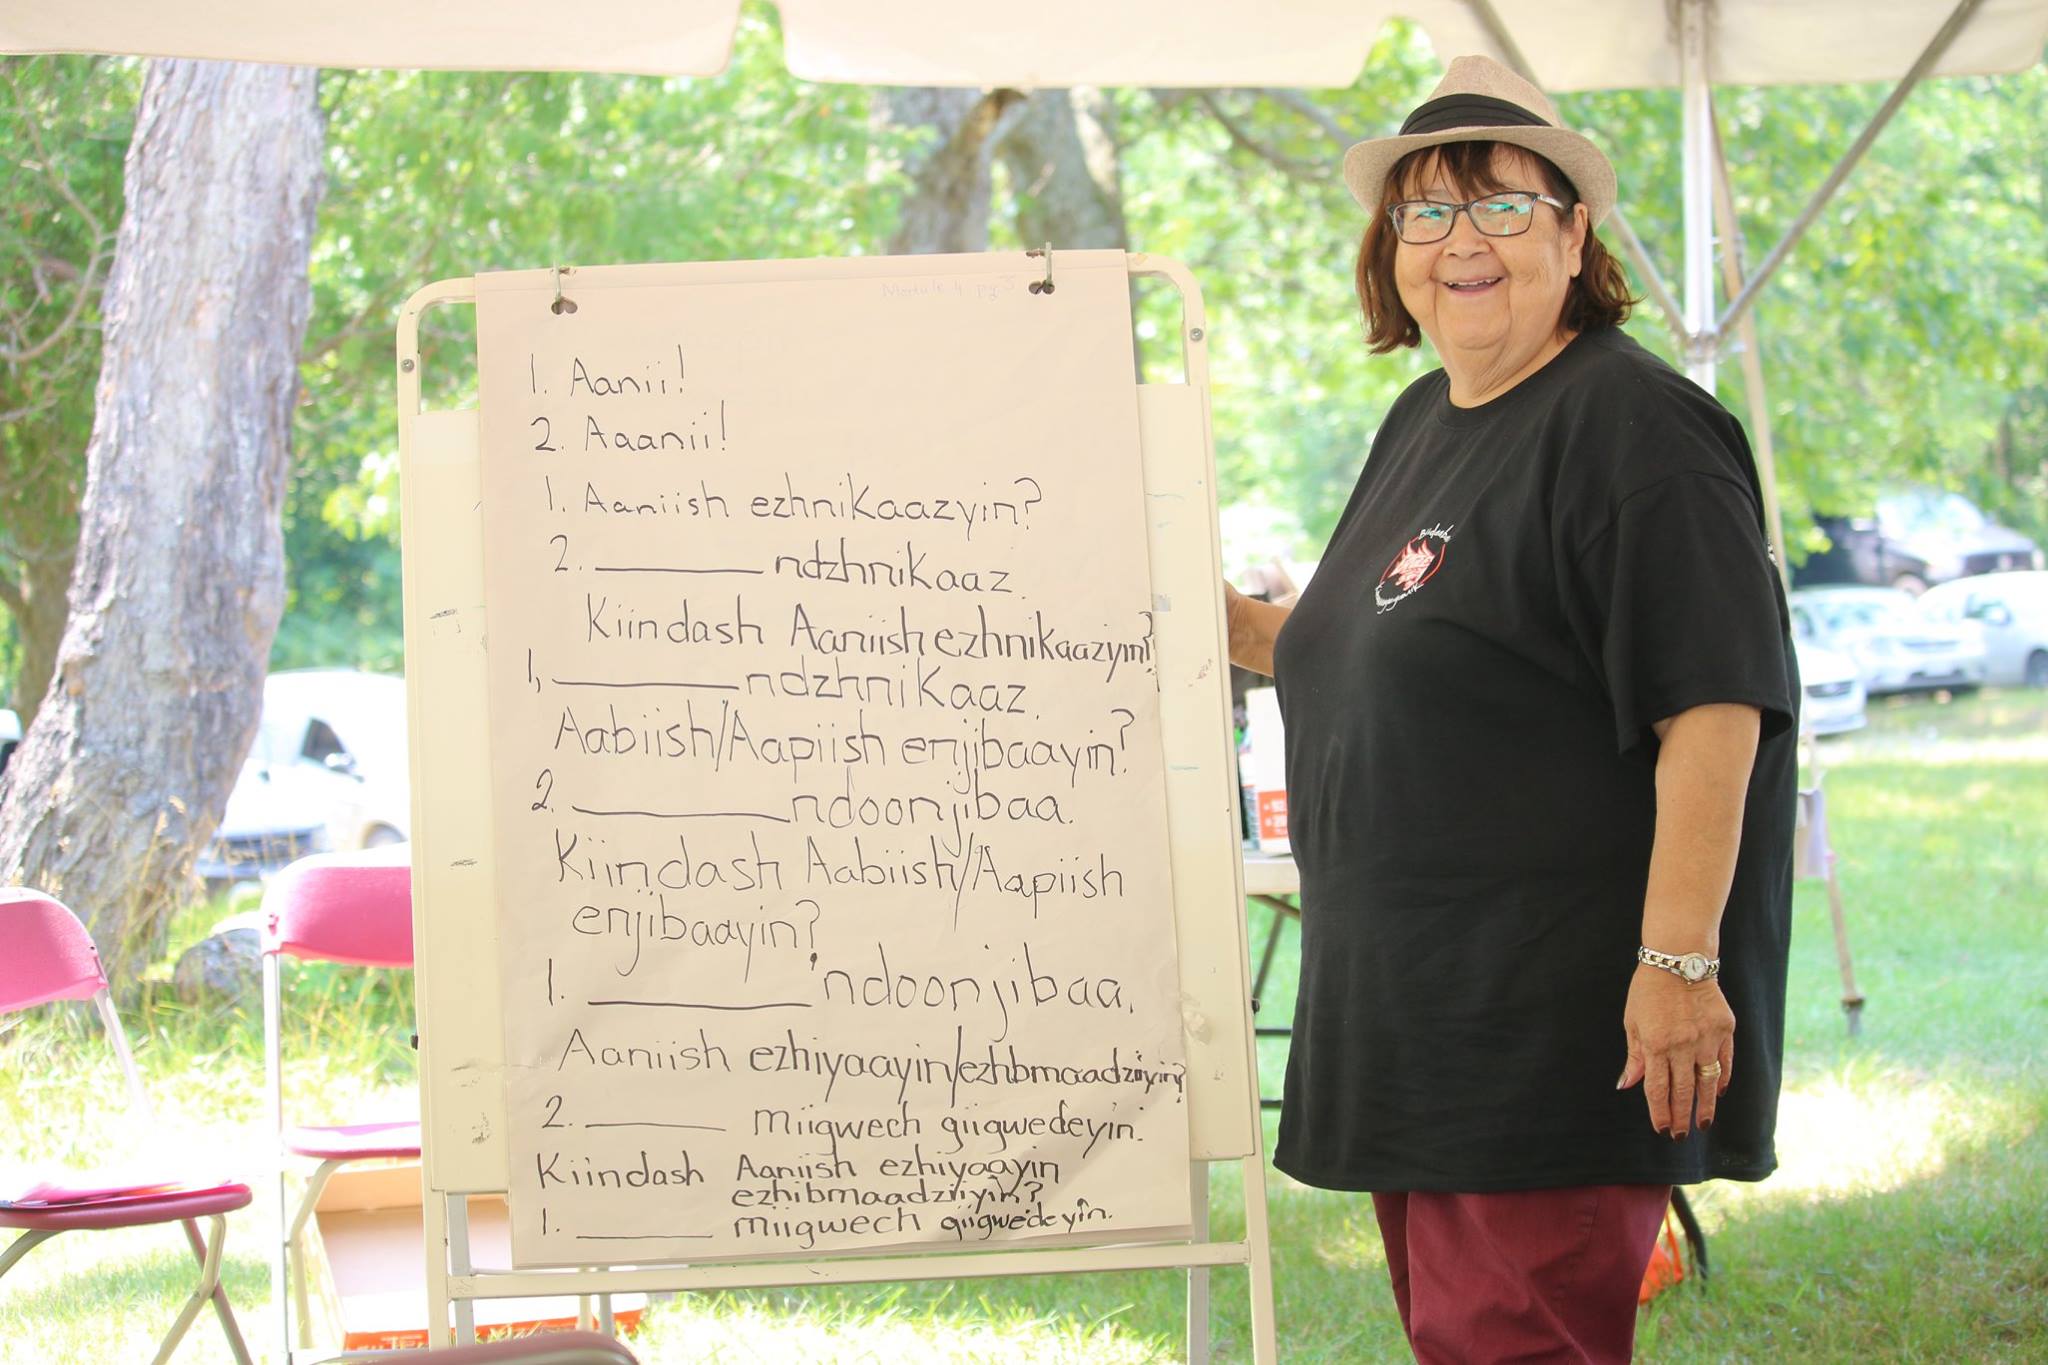 Module 4 pg 5
1. Aanii!
2. Aaanii!
1. Aaniish ezhnikaazyin?
2. ________ ndzhnikaaz.
Kiindash Aaniish ezhnikaaziyin?
1, ________ ndzhnikaaz.
Aabiish/Aapiish enjibaayin?
2. ________ ndoonjibaa.
Kiindash Aabiish/Aapiish
enjibaayin?
1. ________ 'ndoonjibaa.
Aaniish ezhiyaayin/ezhbmaadziiyin?
2. ________ miigwech giigwedeyin.
Kiindash Aaniish ezhiyaayin
ezhibmaadziiyin?
1. ________ miigwech giigwedeyin.